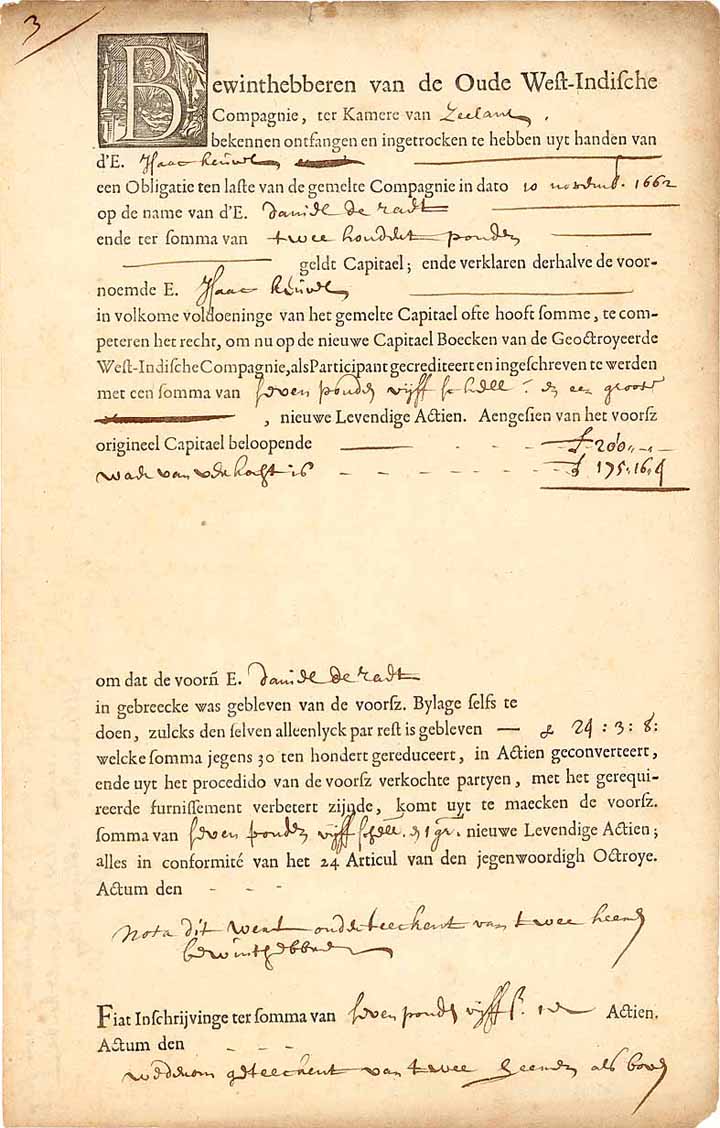 3
Bewinthebberen van de Oude West-Indische
Compagnie, ter Kamere van Zeelant.
bekennen ontfangen en ingetrocken te hebben uyt handen van
d'E. Isaac
een Obligatie ten laste van de gemelte Compagnie in dato 10 novemb. 1662
op de name van d'E. Daniel de Radt
ende ter somma van twee hondert ponden
geldt Capitael; ende verklaren derhalve de voor-
noemde E. Isaac
in volkome voldoeninge van het gemelte Capitael ofte hooft somme, te com-
peteren het recht, om nu op de nieuwe Capitael Boecken van de Geoctroyeerde
West-Indische Compagnie, als Participant gecrediteert en ingeschreven te werden
met een somma van seven ponden vijff schell: en een groote
, nieuwe Levendige Actien. Aengesien van het voorsz
origineel Capitael beloopende - - - £ 200,,-,,-
waer van verkocht is - - - - - - £ 175.16.4
om dat de voorñ E. Daniel de Radt
in gebreecke was gebleven van de voorsz. Bylage selfs te
doen, zulcks den selven alleenlyck par rest is gebleven — £ 24 : 3 : 8:
welcke somma jegens 30 ten hondert gereduceert, in Actien geconverteert,
ende uyt het procedido van de voorsz verkochte partyen, met het gerequi-
reerde furnissement verbetert zijnde, komt uyt te maecken de voorsz.
somma van seven ponden vijff schell. en 1 gr. nieuwe Levendige Actien;
alles in conformité van het 24 Articul van den jegenwoordigh Octroye.
Actum den - - -
Nota dit went onderteeckent van twee heeren
bewinthebberen
Fiat Inschrijvinge ter somma van seven ponden vijff ß. 1 Actien.
Actum den - - -
wederom geteeckent van twee heeren als boven